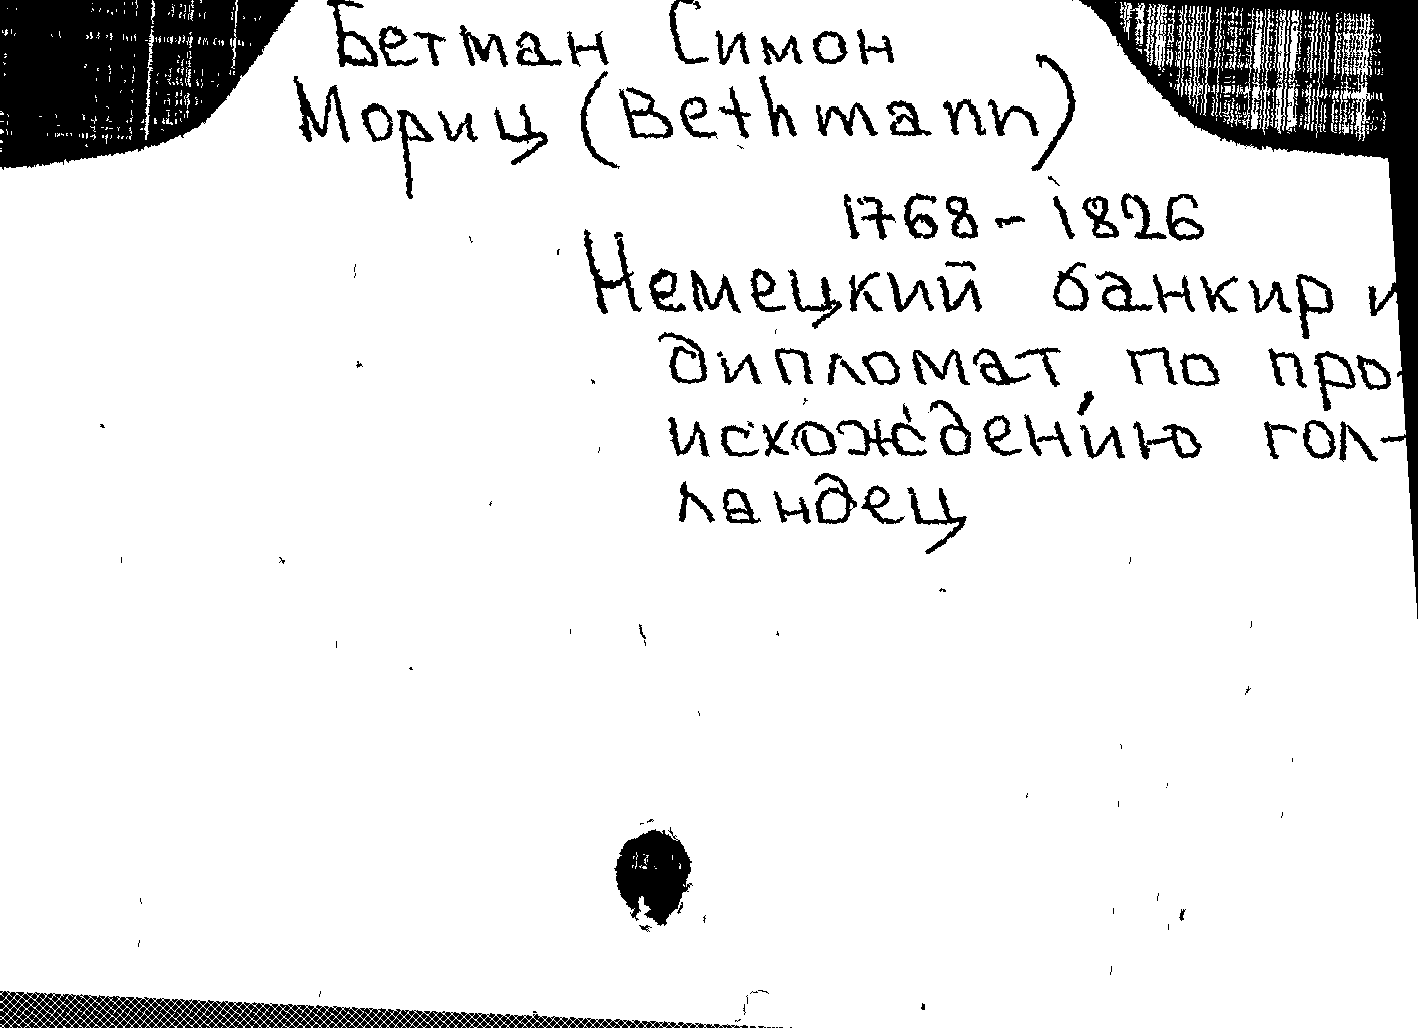 Бетман Симон
Мориц (Bethmann)
1768-1826
Немецкий банкир и
дипломат, по про-
исхождению гол-
ландец